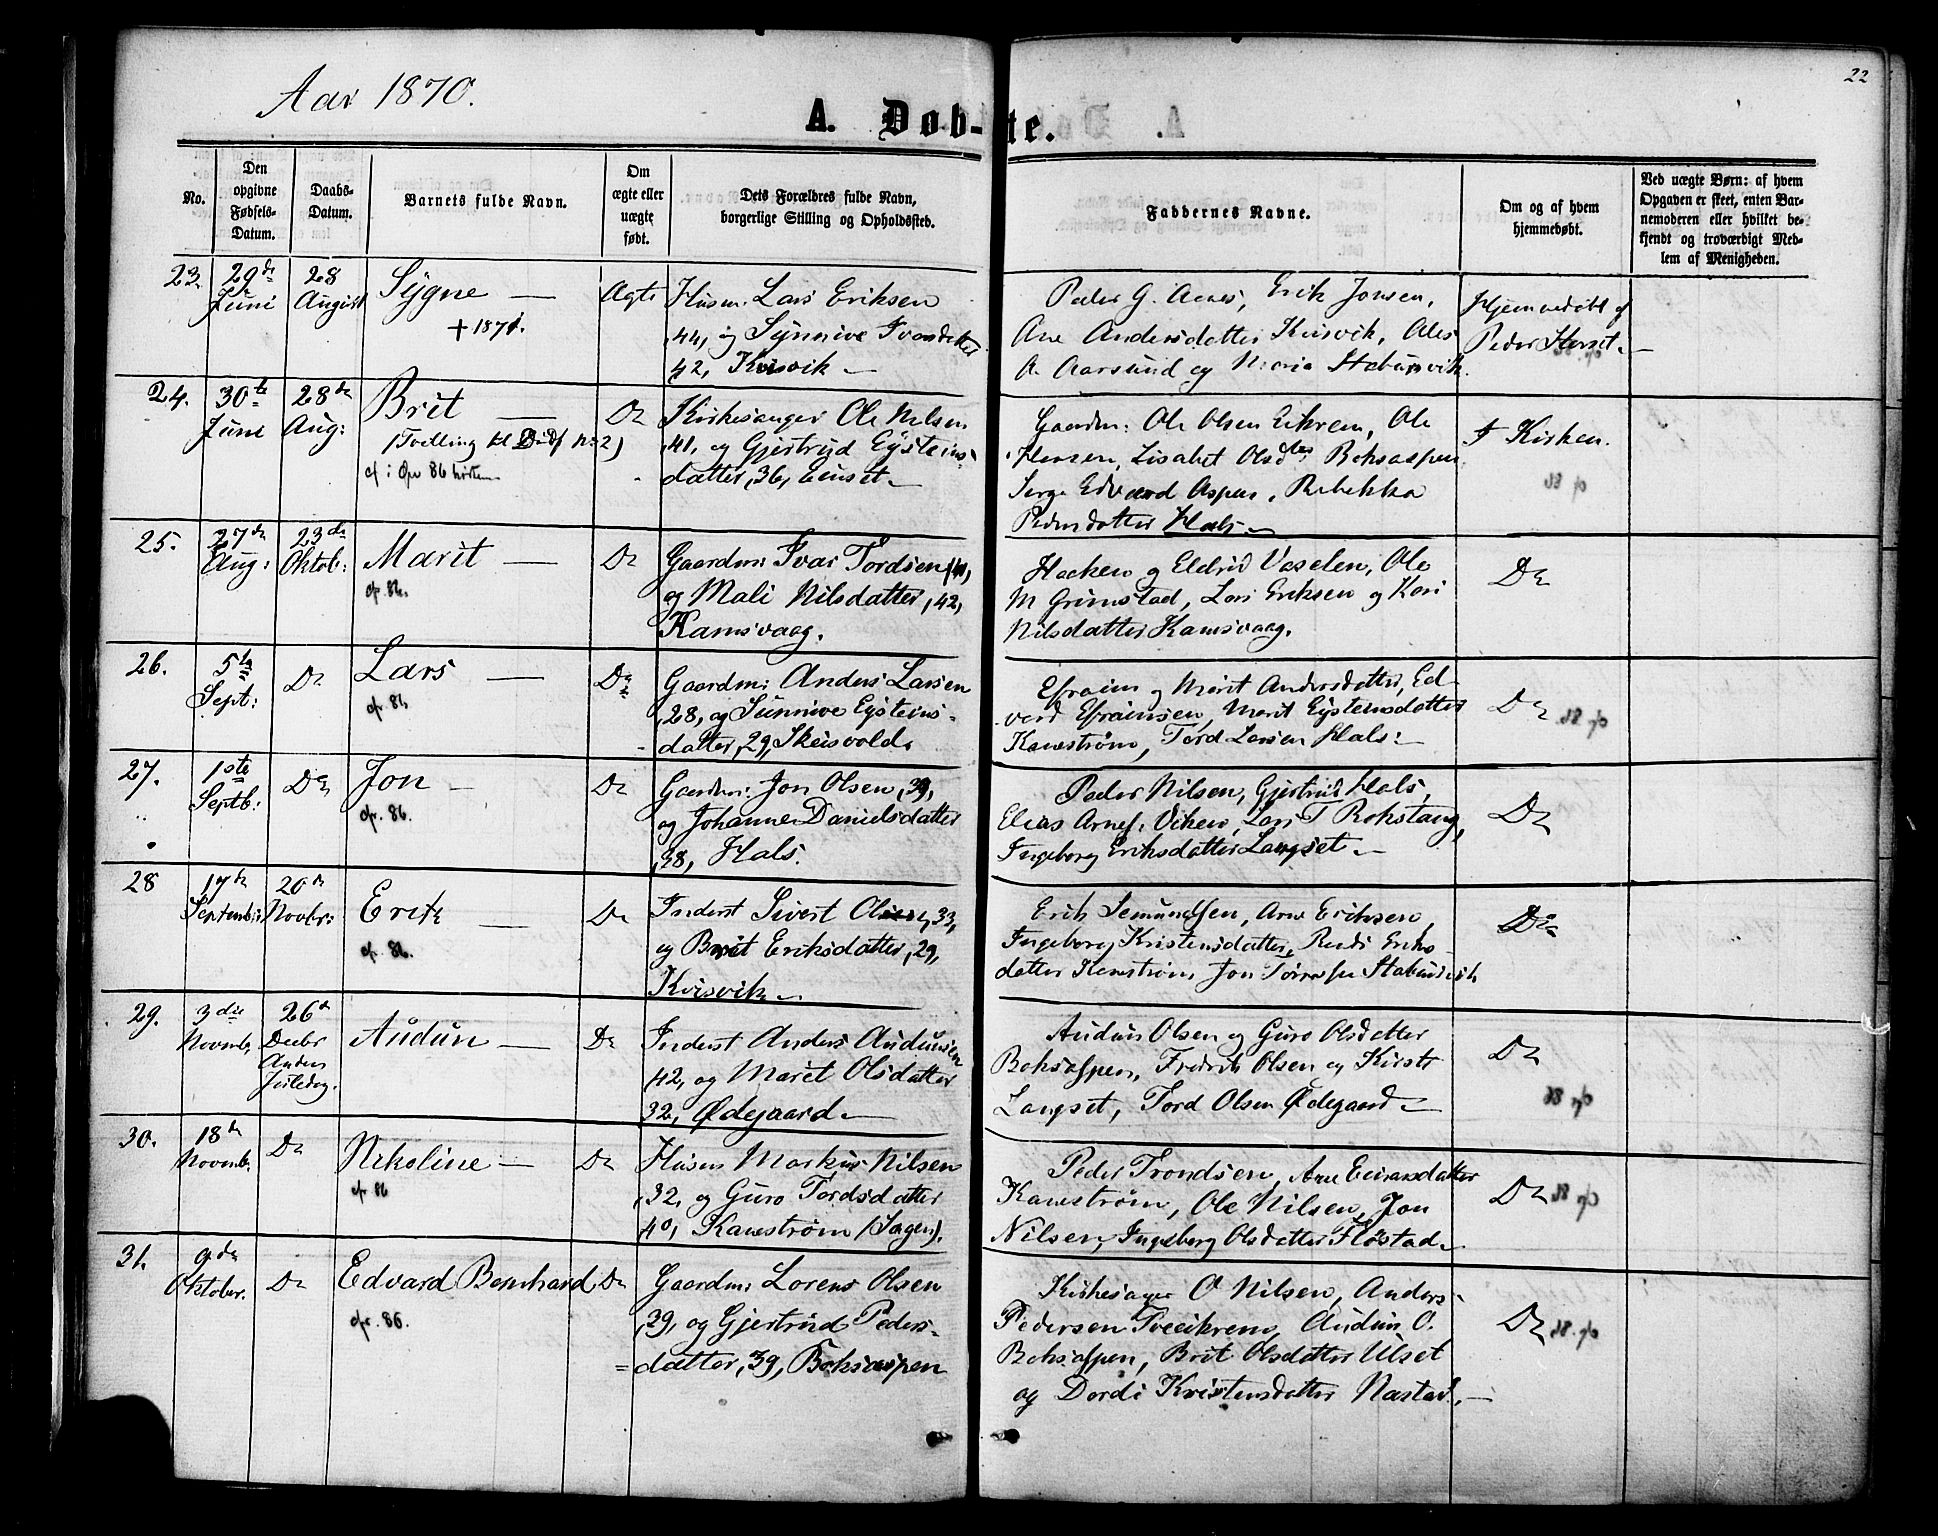 22
Aar 1870.
A. Døb-te.
No.
Den opgivne Fødsels-Datum.
Daabs-Datum.
Barnets fulde Navn.
Om ægte eller uægte født.
Dets Forældres fulde Navn, borgerlige Stilling og Opholdssted.
Faddernes Navne.
Om og af hvem hjemmedøbt.
Ved uægte Børn: af hvem Opgaven er skeet, enten Barnemoderen eller hvilket bekjendt og troværdigt Medlem af Menigheden.
23. 29de Juni 28 August Sygne — Ægte
+ 1871.
Husm: Lars Eriksen
44, og Synnive Ivarsdatter
42, Kvisvik —
Peder G. Aenes, Erik Jonsen,
Ane Andersdatter Kvisvik, Ales
A. Aarsund og Maria Stabursvik.
Hjemmedøbt af
Peder Horset.
24. 30te Juni 28de Aug: Brit — Do
(Tvilling til Dødf No 2)
Kirkesanger Ole Nilsen
41, og Gjertrud Eysteins-
datter, 36, Einset —
Gaardm: Ole Olsen Eikrem, Ole
Hansen, Lisabet Olsdtr Boksaspen
Serg. Edvard Aspen, Rebekka
Pedersdatter Hals. —
I Kirken.
25. 27de Aug: 23de Oktob: Marit — Do
opr. 86.
Gaardm: Ivar Tordsen, 41,
og Mali Nilsdatter, 42,
Kamsvaag.
Haaken og Eldrid Vaselen, Ole
M Grimstad, Lars Eriksen og Kari
Nilsdatter Kamsvaag.
Do
26. 5te Sept: Do Lars — Do
opr. 86
Gaardm: Anders Larsen
28, og Sunnive Eysteins-
datter, 29, Skeisvold.
Efraim og Marit Andersdatter, Ed-
vard Efraimsen, Marit Eysteinsdatter
Kanestrøm, Tord Larsen Hals:
Do
27. 1ste Septb: Do Jon — Do
opr. 86.
Gaardm: Jon Olsen, 39,
og Johanne Danielsdatter
38, Hals.
Peder Nilsen, Gjertrud Hals,
Elias Arnes. Viken, Lars T Rokstang,
Ingeborg Eriksdatter Langset. —
Do
28 17de Septemb: 20de Novbr: Erik — Do
opr. 86.
Inderst Sivert Olsen, 33,
og Brit Eriksdatter, 29,
Kvisvik —
Erik Semundsen, Arne Eriksen,
Ingeborg Kristensdatter, Randi Eriks-
datter Kanestrøm, Jon Stabursvik
Do
29. 3die Novemb. 26de Decbr Anden Juledag. Audun — Do
Inderst Anders Audunsen
42, og Marit Olsdatter
32, Ødegaard —
Audun Olsen og Guro Olsdatter
Boksaspen, Fredrik Olsen og Kirsti
Langset, Tord Olsen Ødegaard —
Do
30. 18de Novemb. Do Nikoline — Do
opr. 86
Husm Markus Nilsen
32, og Guro Tordsdatter
40, Kanestrøm (Sagen).
Peder Trondsen, Ane Einarsdatter
Kanestrøm, Ole Nilsen, Jon
Nilsen, Ingeborg Olsdatter Flostad —
Do
31. 9de Oktober. Do Edvard Bernhard Do
opr. 86.
Gaardm: Lorens Olsen
29, og Gjertrud Peders-
datter, 39, Boksaspen
Kirkesanger O Nilsen, Anders
Pedersen Tveeikrem, Audun O.
Boksaspen, Brit Olsdatter Ulset
og Dordi Kristensdatter Nastad. —
Do